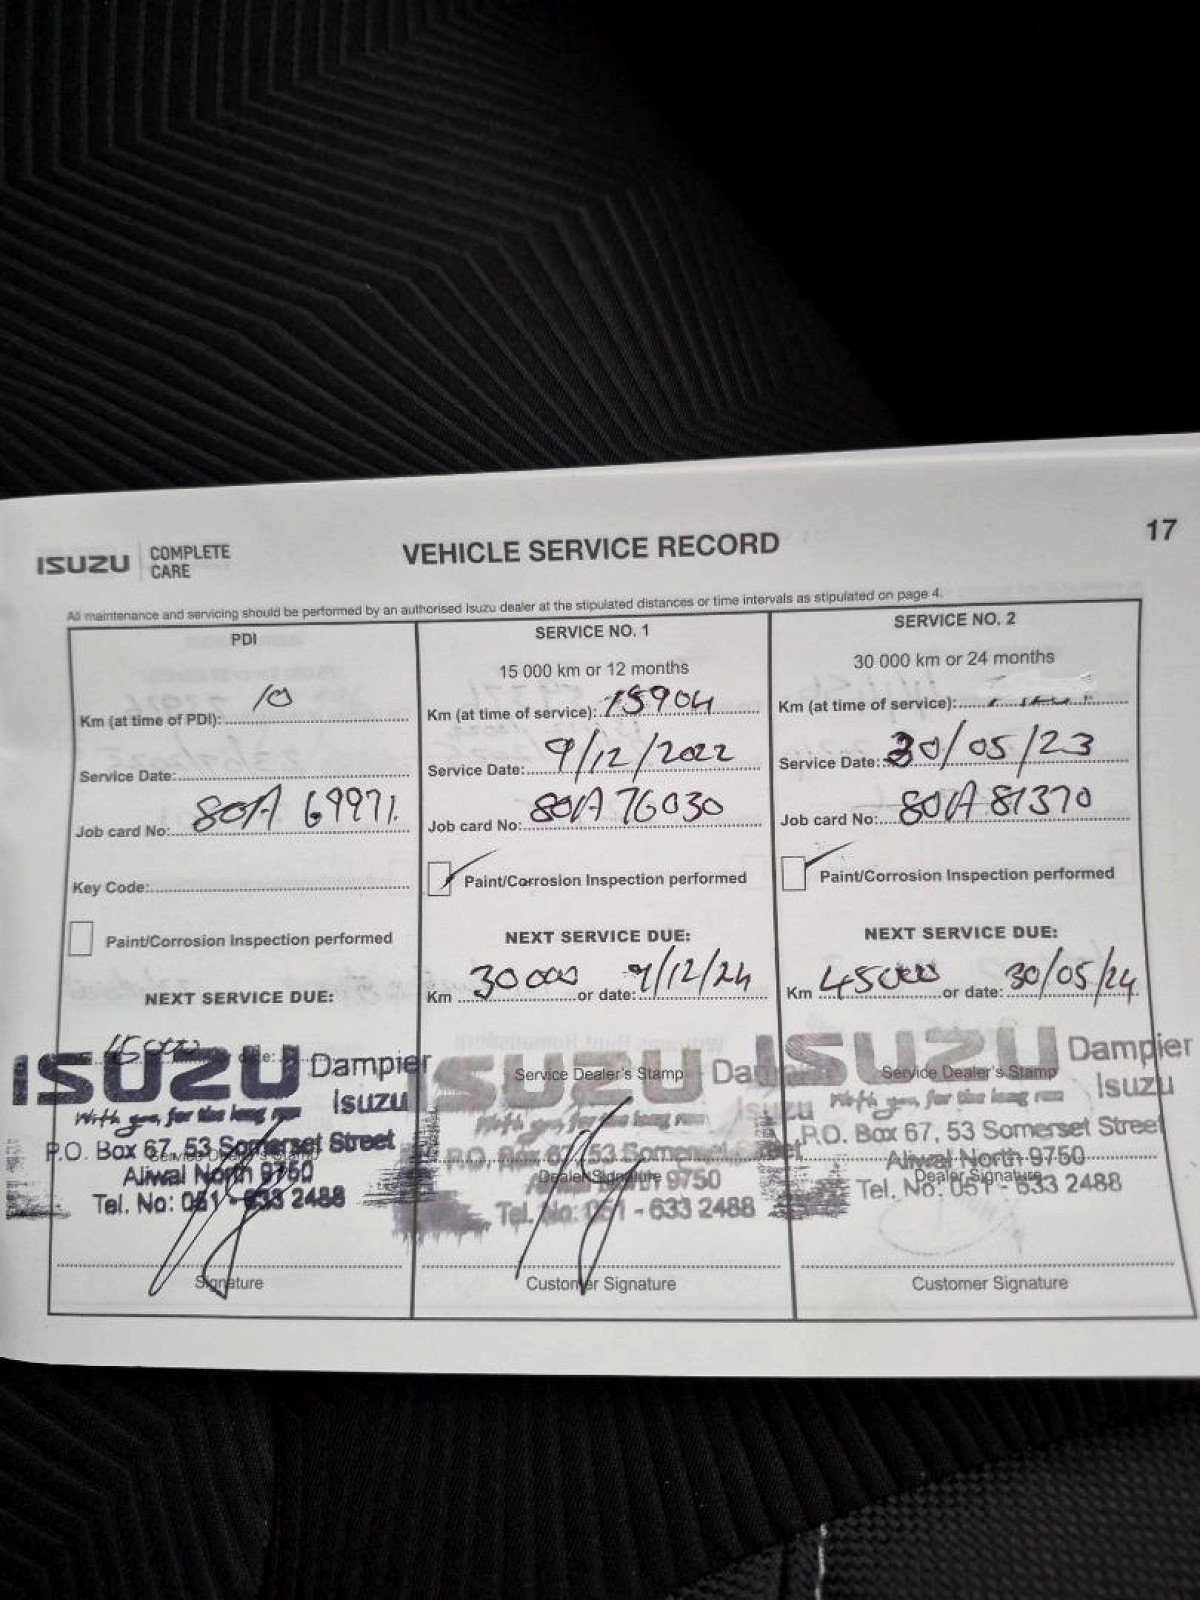 ISUZU COMPLETE CARE
VEHICLE SERVICE RECORD
17
All maintenance and servicing should be performed by an authorised Isuzu dealer at the stipulated distances or time intervals as stipulated on page 4.
PDI
Km (at time of PDI): 10
Service Date:
Job card No: 80A 69971.
Key Code:
Paint/Corrosion Inspection performed
NEXT SERVICE DUE:
15000 date:
ISUZU Dampier Isuzu
With you, for the long run
P.O. Box 67, 53 Somerset Street
Aliwal North 9750
Tel. No: 051 - 633 2488
Signature
SERVICE NO. 1
15 000 km or 12 months
Km (at time of service): 15904
Service Date: 9/12/2022
Job card No: 80A 76030
Paint/Corrosion Inspection performed
NEXT SERVICE DUE:
Km 30000 or date: 9/12/24
Service Dealer's Stamp
ISUZU Dampier Isuzu
With you, for the long run
P.O. Box 67, 53 Somerset Street
Dealer Signature
9750
Tel. No: 051 - 633 2488
Customer Signature
SERVICE NO. 2
30 000 km or 24 months
Km (at time of service):
Service Date: 30/05/23
Job card No: 80A 81370
Paint/Corrosion Inspection performed
NEXT SERVICE DUE:
Km 45000 or date: 30/05/24
Service Dealer's Stamp
ISUZU Dampier Isuzu
With you, for the long run
P.O. Box 67, 53 Somerset Street
Aliwal North 9750
Dealer Signature
Tel. No: 051 - 633 2488
Customer Signature